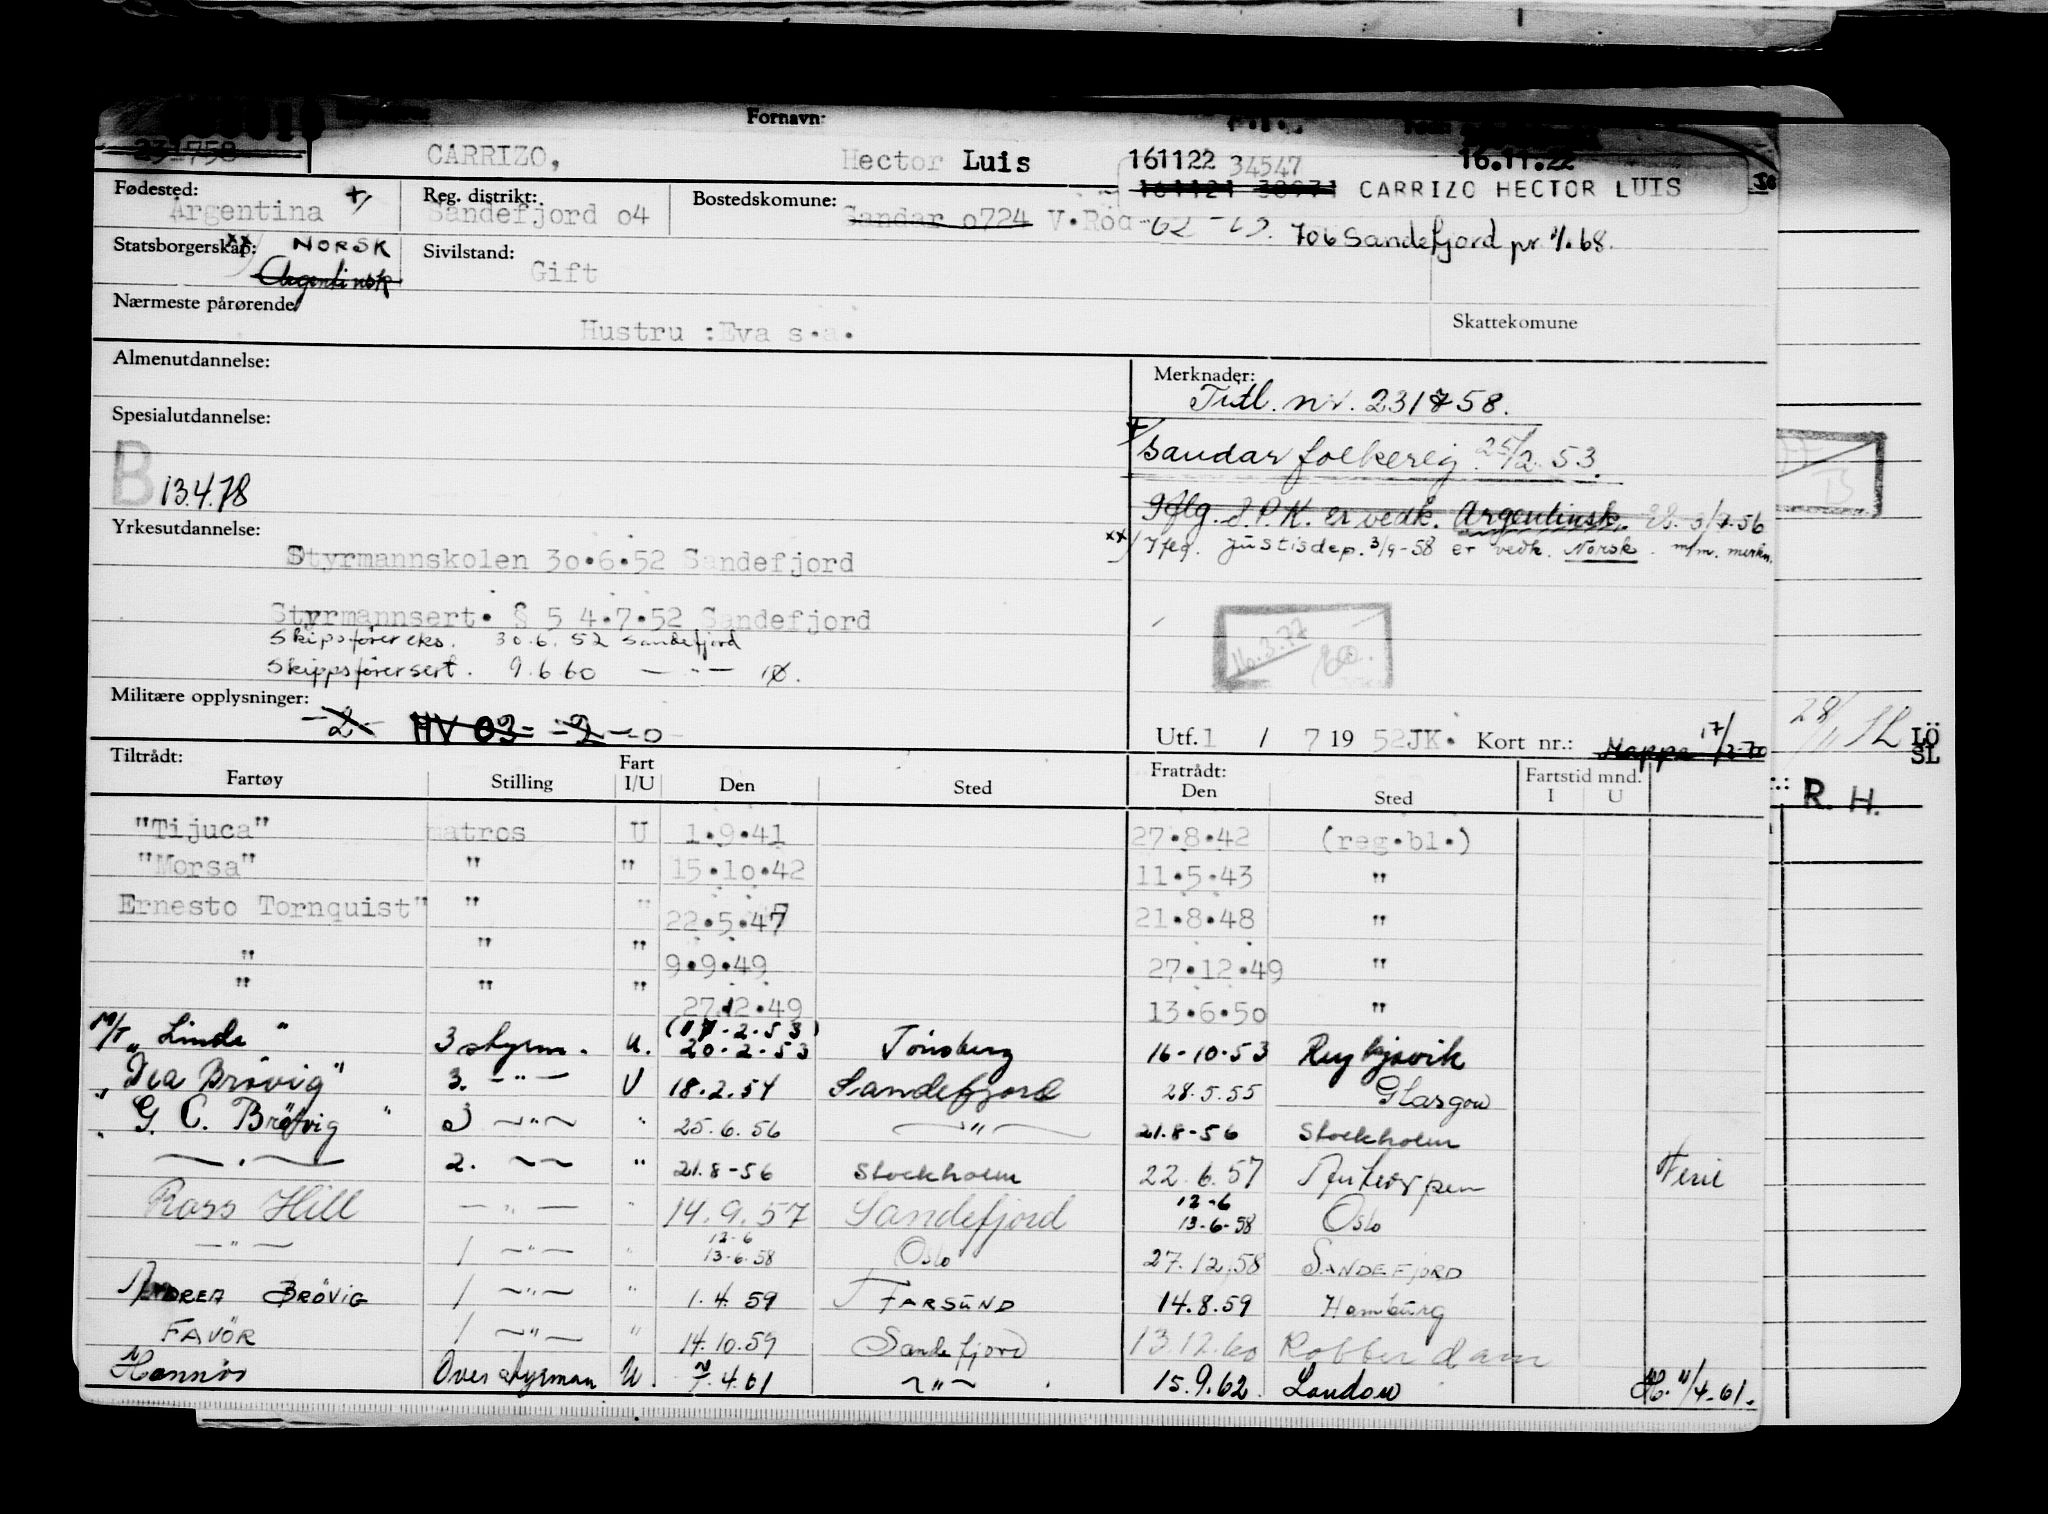 Fornavn:
231758 CARRIZO, Hector Luis 161122 34547 16.11.22
161121 38971 CARRIZO HECTOR LUIS
Fødested: Argentina +/ Reg. distrikt: Sandefjord o4 Bostedskomune: Sandar o724 V.Röd 706 Sandefjord pr 1/1.68.
Statsborgerskap: xx) NORSK Sivilstand: Gift
Argentinsk
Nærmeste pårørende
Hustru :Eva s.a. Skattekomune
Almenutdannelse: Merknader:
Tidl. nr. 231758.
Spesialutdannelse:
+/ Sandar folkereg. 25/2.53.
B 13.4.78
Iflg. S.P.K. er vedk. Argentinsk. 3/7.56
Yrkesutdannelse:
xx) Iflg. Justisdep. 3/9-58 er vedk. Norsk. m/m. merkn.
Styrmannskolen 3o.6.52 Sandefjord
Styrmannsert. § 5 4.7.52 Sandefjord
Skipsförer eks. 30.6.52 Sandefjord
Skippsförersert. 9.6.60 — " —
16.3.77
Militære opplysninger:
-2- HV 03- -2--0-
Utf. 1 / 7 19 52JK. Kort nr.: Mappe 17/2-70
28/11 SL LÖ
SL
R. H.
Tiltrådt: Fratrådt:
Fartøy Stilling Fart I/U Den Sted Den Sted Fartstid mnd. I U
"Tijuca" matros U 1.9.41 27.8.42 (reg.bl.)
"Morsa" " " 15.1o.42 11.5.43 "
Ernesto Tornquist" " " 22.5.47 21.8.48 "
" " " 9.9.49 27.12.49 "
" " " 27.12.49 13.6.5o "
M/T "Linde" 3 styrm. U. (17.2.53) 20-2-53 Tönsberg 16-10-53 Reykjavik
"Dea Brövig" 3. — " — U 18.2.54 Sandefjord 28.5.55 Glasgow
" G. C. Brövig " 3 — " — " 25.6.56 — " — 21.8-56 Stockholm
— " — 2. — " — " 21.8-56 Stockholm 22.6.57 Antwerpen Ferie
Ross Hill — " — " 14.9.57 Sandefjord 12-6 13-6-58 Oslo
— " — 1 — " — " 12-6 13-6.58 Oslo 27.12.58 SANDEFJORD
ANDREA BRÖVIG 1 — " — " 1.4.59 FARSUND 14.8.59 Hamburg
FAVÖR 1 — " — " 14.10.59 Sandefjord 13.12.60 Rotterdam
Hannös Overstyrman U. 7.4.61 — " — 15.9.62. London 11/4-61.